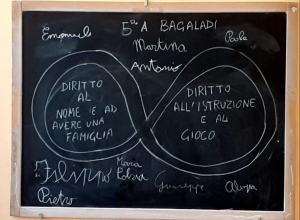 Emanuele
5ª A BAGALADI
Martina
Paola
Antonio
DIRITTO
AL
NOME E AD
AVERE UNA
FAMIGLIA
DIRITTO
ALL'ISTRUZIONE
E AL
GIOCO
Filippo
Maria
Giuseppe
Alessia
Pietro